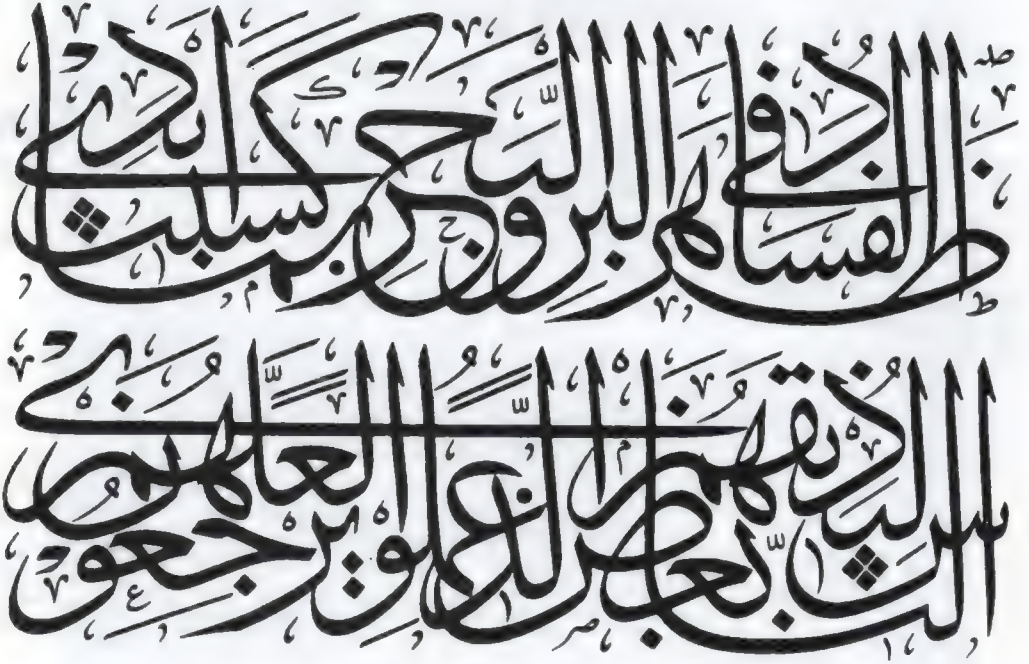 ظَهَرَ الْفَسَادُ فِي الْبَرِّ وَالْبَحْرِ بِمَا كَسَبَتْ أَيْدِي
النَّاسِ لِيُذِيقَهُمْ بَعْضَ الَّذِي عَمِلُوا لَعَلَّهُمْ يَرْجِعُونَ